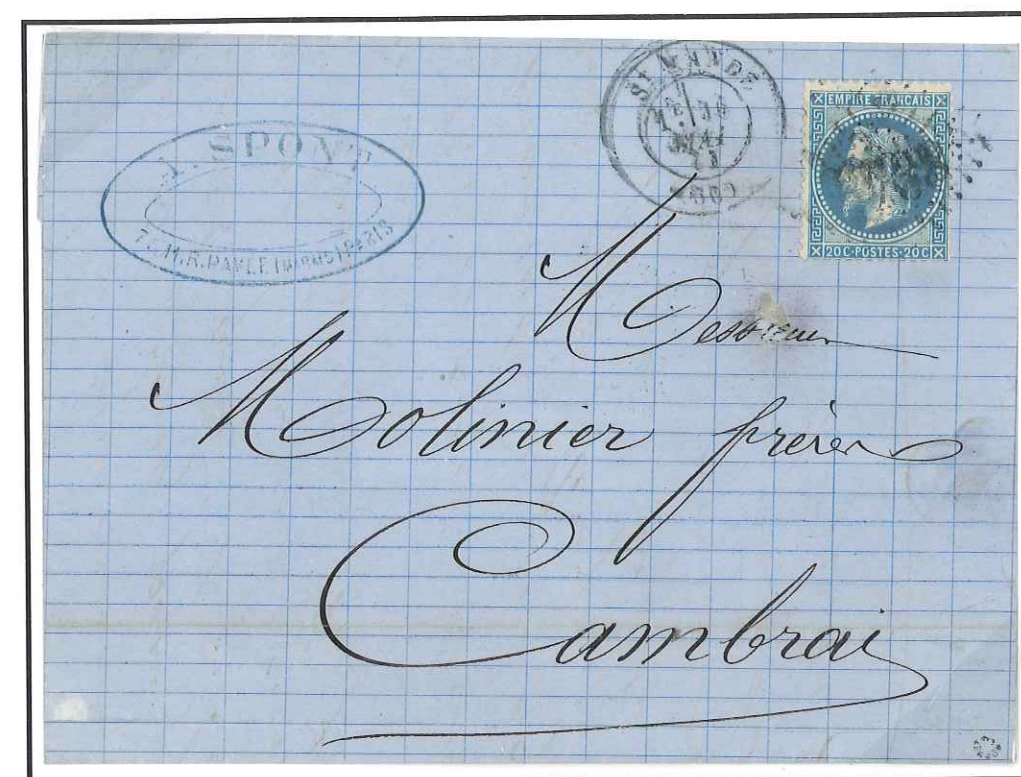 SPONT
PARIS
ST MANDÉ
MAI
71
(60)
EMPIRE FRANCAIS
20C·POSTES·20C
Messieurs
Molinier frères
Cambrai